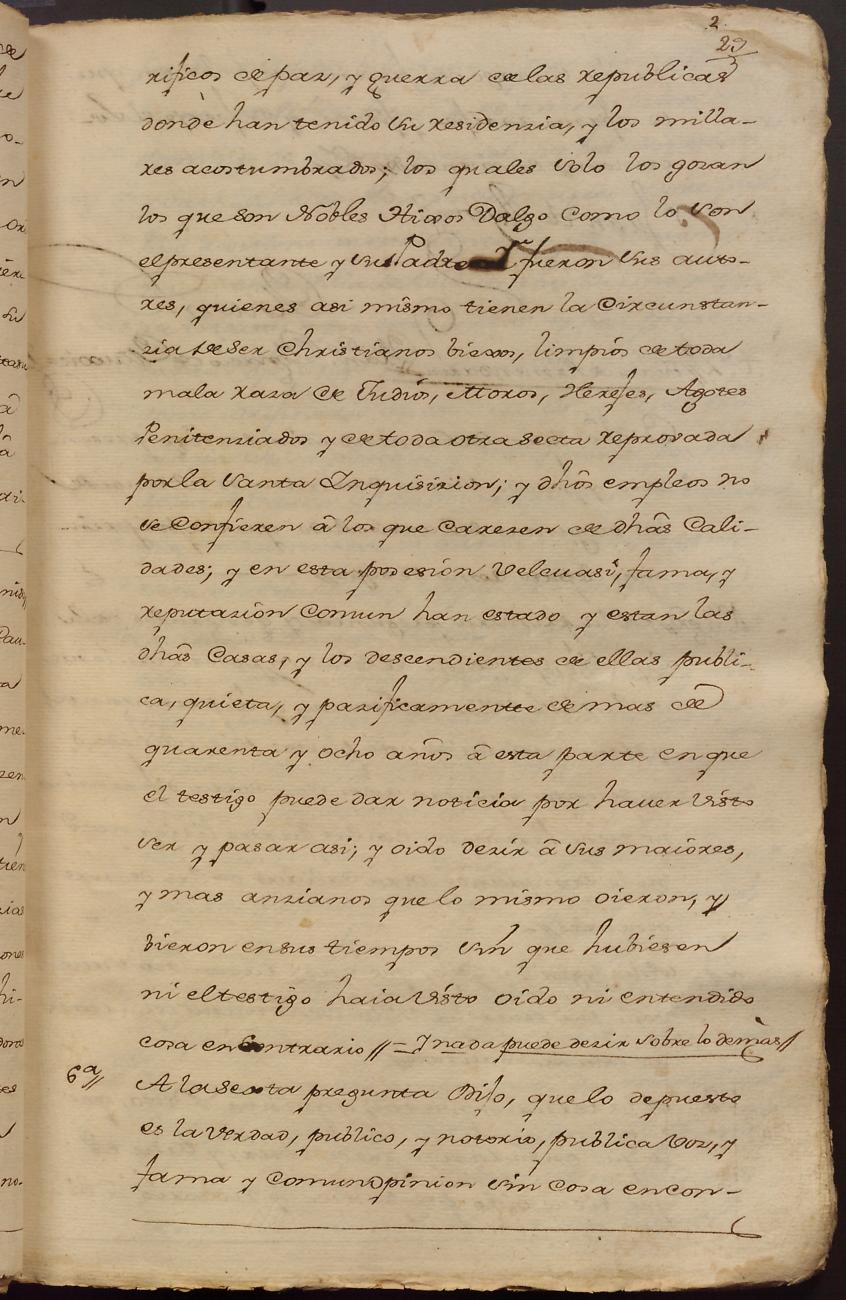 2.
29
rificos de paz, y guerra de las republicas
donde han tenido su residenzia, y los milla-
res acostumbrados; los quales solo los gozan
los que son Nobles Hixos Dalgo como lo son
el presentante y su Padre y fueron sus auto-
res, quienes asi mismo tienen la Circunstan-
zia de ser Christianos biexos, limpios de toda
mala raza de Judios, Moros, Herejes, Agotes
Penitenziados y de toda otra secta reprovada
por la Santa Inquisizion; y dhos empleos no
se Confieren â los que Carezen de dhas Cali-
dades; y en esta posesión velcuasi, fama, y
reputazion Comun han estado y estan las
dhas Casas, y los descendientes de ellas publi-
ca, quieta, y pazificamentte de mas de
quarenta y ocho años â esta parte en que
el testigo puede dar noticia por haver visto
ser y pasar asi; y oido dezir â sus maiores,
y mas anzianos que lo mismo oieron, y
bieron en sus tiempos sin que hubiesen
ni el testigo haia visto oido ni entendido
cosa en Contrario // = I nada puede dezir sobre lo demàs //
6ª //
A la sexta pregunta Dijo, que lo depuesto
es la verdad, publico, y notorio, publica voz, y
fama y Comun opinion sin cosa en con-